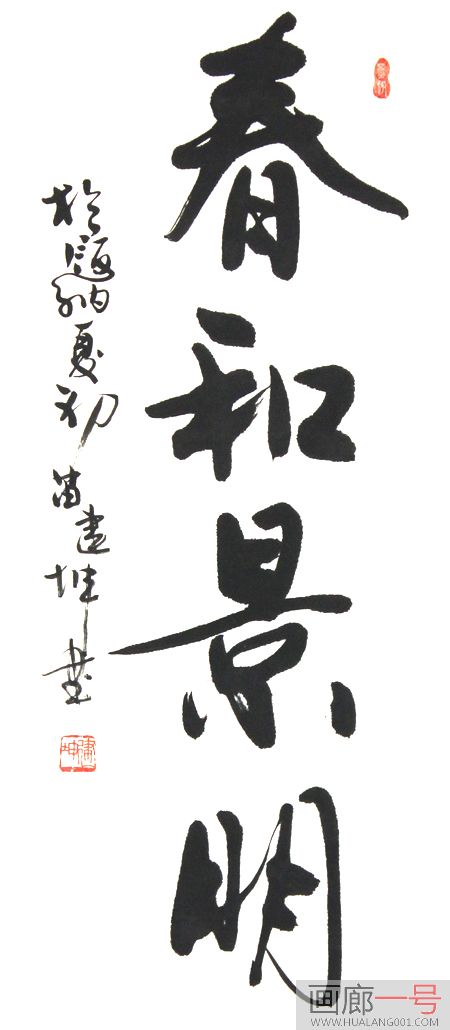 春和景明
於 夏初 建坤書
画廊一号
WWW.HUALANG001.COM